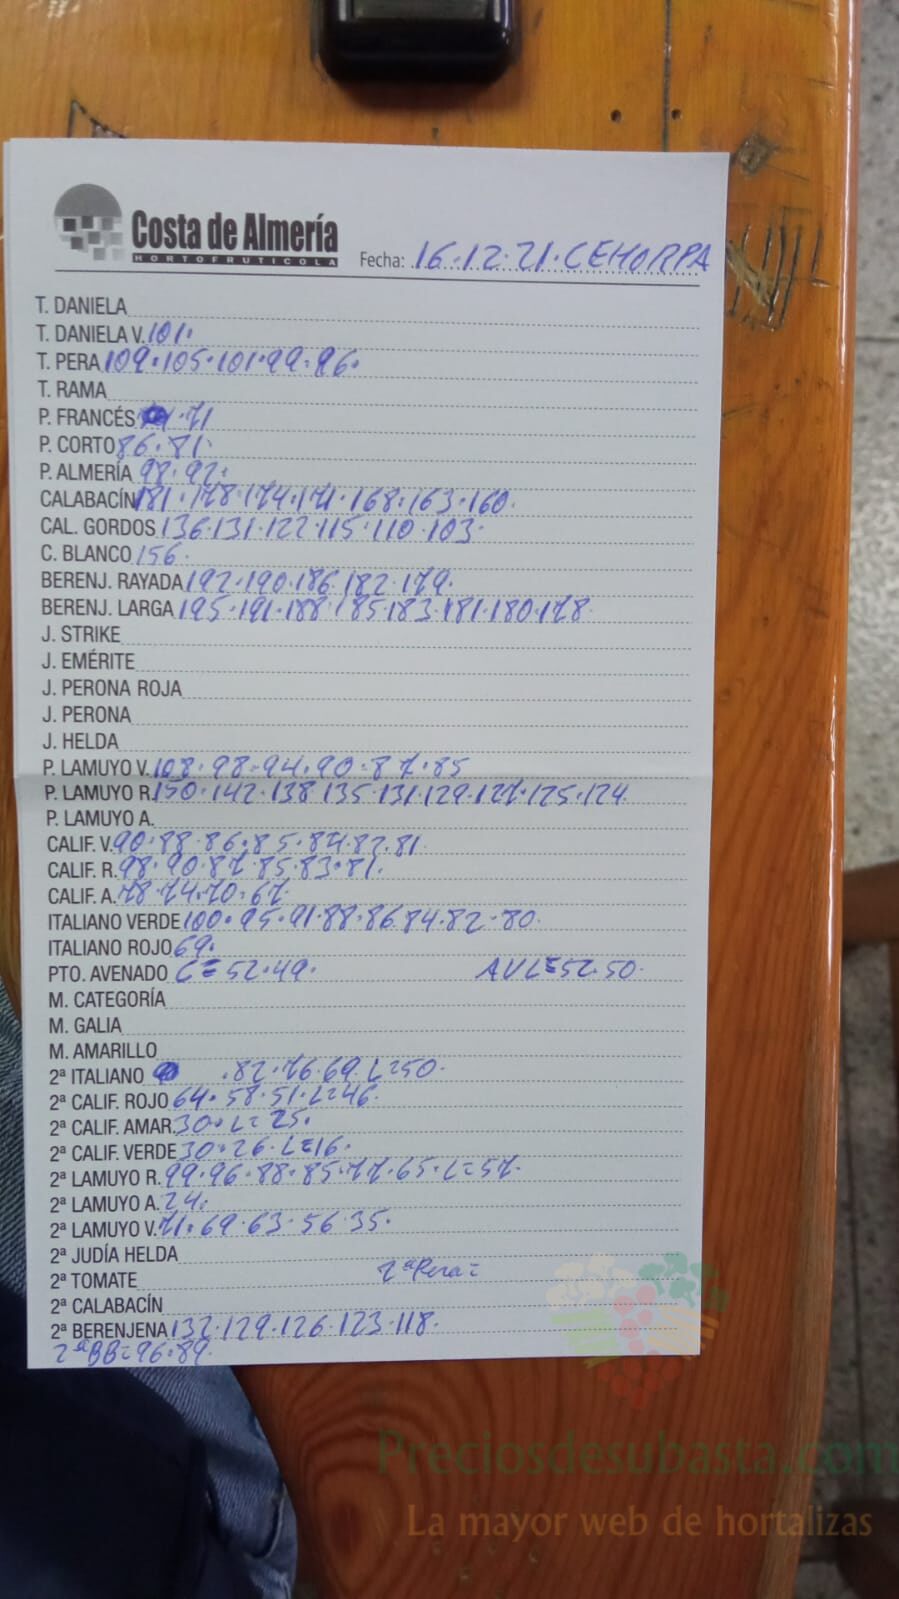 Costa de Almería
HORTOFRUTICOLA
Fecha: 16.12.21.CEHORPA
T. DANIELA
T. DANIELA V. 101.
T. PERA 109.105.101.99.96.
T. RAMA
P. FRANCÉS .71
P. CORTO 86.81.
P. ALMERÍA 98.92.
CALABACÍN 181.178.174.171.168.163.160.
CAL. GORDOS 136.131.122.115.110.103.
C. BLANCO 156.
BERENJ. RAYADA 192.190.186.182.179.
BERENJ. LARGA 195.191.188.185.183.181.180.178.
J. STRIKE
J. EMÉRITE
J. PERONA ROJA
J. PERONA
J. HELDA
P. LAMUYO V. 108.98.94.90.87.85
P. LAMUYO R. 150.142.138.135.131.129.127.125.124.
P. LAMUYO A.
CALIF. V. 90.88.86.85.84.82.81.
CALIF. R. 98.90.87.85.83.81.
CALIF. A. 78.74.70.67.
ITALIANO VERDE 100.95.91.88.86.84.82.80.
ITALIANO ROJO 69.
PTO. AVENADO C=52.49. AVL=52.50.
M. CATEGORÍA
M. GALIA
M. AMARILLO
2ª ITALIANO .82.76.69.L=50.
2ª CALIF. ROJO 64.58.51.L=46.
2ª CALIF. AMAR. 30.L=25.
2ª CALIF. VERDE 30.26.L=16.
2ª LAMUYO R. 99.96.88.85.77.65.L=57.
2ª LAMUYO A. 24.
2ª LAMUYO V. 71.69.63.56.35.
2ª JUDÍA HELDA
2ª TOMATE 2ªPera=
2ª CALABACÍN
2ª BERENJENA 132.129.126.123.118.
2ªBB=96.89.
Preciosdesubasta.com
La mayor web de hortalizas